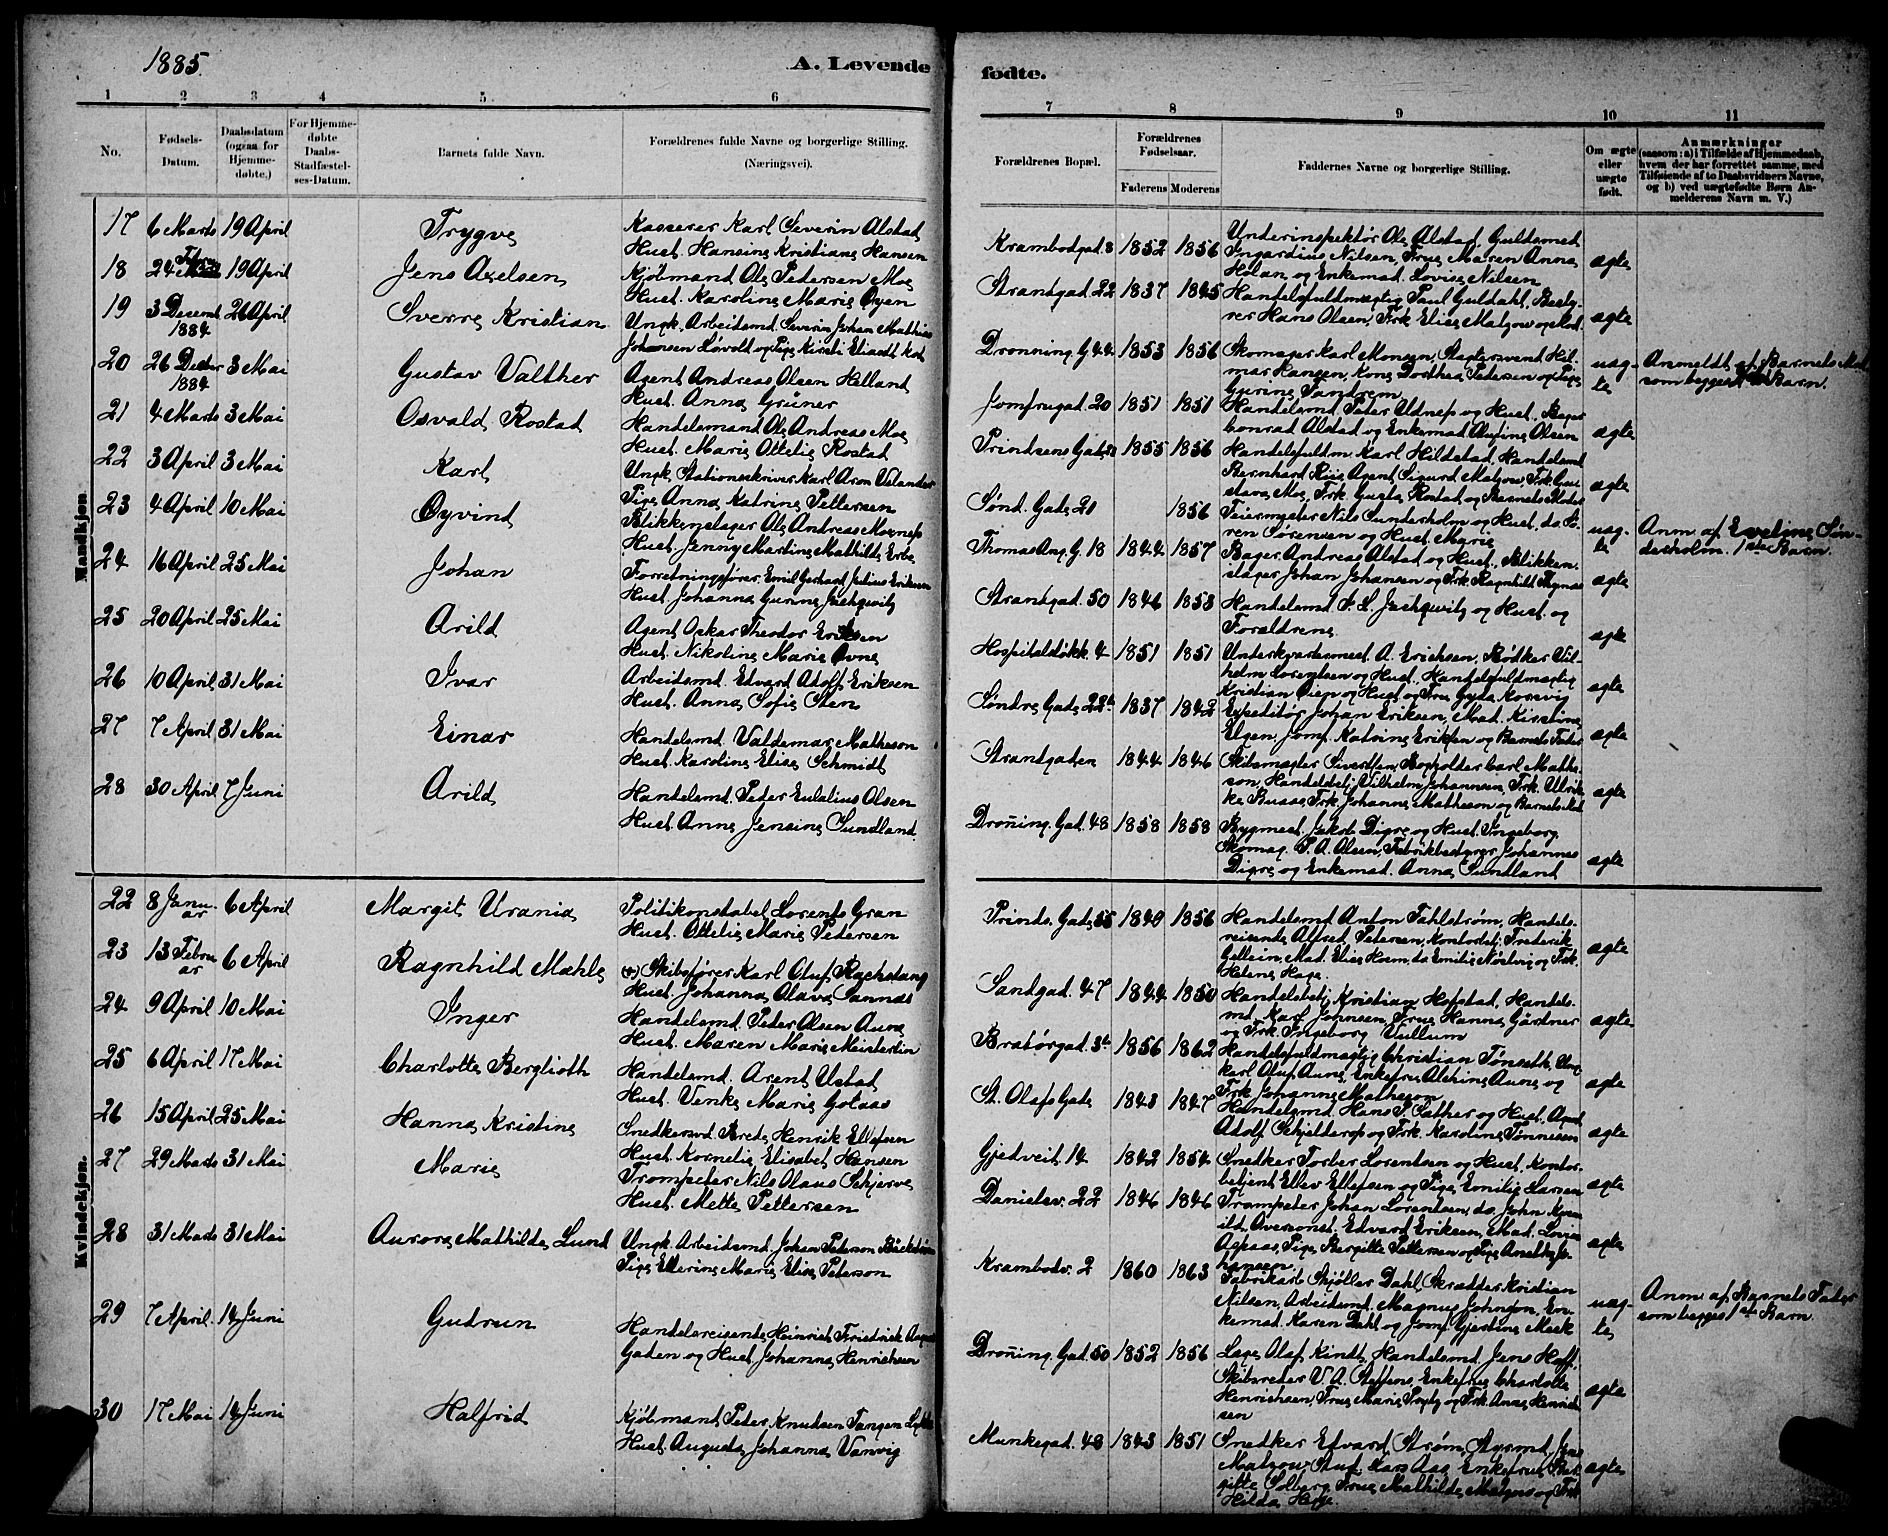 1885.
A. Levende
fødte.
1 2 3 4 5 6
7 8 9 10 11
No.
Fødsels-Datum.
Daabsdatum (ogsaa for Hjemme-døbte.)
For Hjemme-døbte Daabs-Stadfæstel-ses-Datum.
Barnets fulde Navn.
Forældrenes fulde Navne og borgerlige Stilling. (Næringsvei).
Forældrenes Bopæl.
Forældrenes Fødselsaar.
Faderens Moderens
Faddernes Navne og borgerlige Stilling.
Om ægte eller uægte født.
Anmærkninger (saasom: a) i Tilfælde af Hjemmedaab, hvem der har forrettet samme, med Tilføiende af to Daabsvidners Navne, og b) ved uægtefødte Børn An-melderens Navn m. V.)
Mandkjøn.
17 6 Marts 19 April Trygve
Kasserer Karl Severin Alstad
Hust. Hansine Kristiane Hansen
Krambodgad. 8 1852 1856
Underinspektør Ole Alstad, Guldsmed
Ingardius Nilsen, Frue Maren Anna
Holan og Enkemad. Lovise Nilsen
ægte
18 24 Febru 19 April Jens Axelsen
Kjøbmand Ole Petersen Moe
Hust. Karoline Marie Øyen
Strandgad. 22 1837 1845
Handelsfuldmægtig Paul Guldahl, Besty-
rer Hans Olsen, Frk. Elise Matzow
ægte
19 3 Decemb 1884 26 April Sverre Kristian
Ungk. Arbeidsmd. Severin Johan Mathias
Johansen Løvolt og Pige Kirsti
Dronning. G. 44 1853 1856
Skomager Karl Monsen, Slagtersvend Hil-
mar Hansen, Kone Dorthea Petersen og Pige
Gurine Sandrem
uæg-
te
Anmeldt af Barnets Mod
som begges Barn.
20 26 Decbr 1884 3 Mai Gustav Valther
Agent Andreas Olsen Helland
Hust. Anna Grüner
Jomfrugad. 20 1851 1851
Handelsmd. Peter Udnes og Hust., Bager
Conrad Alstad og Enkemad. Olufine Olsen
ægte
21 4 Marts 3 Mai Osvald Rostad
Handelsmand Ole Andreas Moe
Hust. Marie Ottilie Rostad
Prindsens Gade 1855 1856
Handelsfuldm. Karl Hildstad, Handelsmd
Bernhard Riis, Agent Sigurd Matzow, Frk. Gu-
stava Moe, Frk. Gusta Rostad og Barnets Moder
ægte
22 3 April 3 Mai Karl
Ungk. Stationsskriver Karl Aron Uslander
Pige Anna Katrine Pettersen
Sønd. Gade 21 1856
Feiermester Nils Sunderholm og Hust., do. Sø-
ren Sørensen og Hust. Marie
uæg-
te
Anm. af Eveline Sün-
desholm. 1ste Barn.
23 4 April 10 Mai Øyvind
Blikkenslager Ole Andreas Moenes
Hust. Jenny Martine Mathilde Erbe
Thomas Ang. G. 18 1844 1857
Bager Andreas Alstad og Hust., Blikken-
slager Johan Johansen og Frk. Ragnhild
ægte
24 16 April 25 Mai Johan
Forretningsfører Emil Gerhard Julius Eriksen
Hust. Johanna Gurine Jachqvitz
Strandgad. 50 1846 1853
Handelsmd. F. L. Jachqvitz og Hust. og
Forældrene
ægte
25 20 April 25 Mai Arild
Agent Oskar Theodor Eriksen
Hust. Nikoline Marie Ovne
Hospitalsløkk. 4 1851 1851
Underkvartermest. A. Erichsen, Bødker Vil-
helm Lorentsen og Hust., Handelsfuldmægtig
Kristian Øien og Hust. og Frue Gyda Korsvig
ægte
26 10 April 31 Mai Ivar
Arbeidsmd. Edvard Adolf Eriksen
Hust. Anna Sofie Sten
Søndre Gade 22b 1837 1842
Expeditør Johan Eriksen, Mad. Kirstine
Elgen, Jomf. Katrine Eriksen og Barnets Fader
ægte
27 7 April 31 Mai Einar
Handelsmd. Valdemar Matheson
Hust. Karoline Elise Schmidt
Strandgaden 1844 1846
Skibsmægler Sivertsen, Bogholder Carl Mathe-
son, Handelsbetj. Vilhelm Johannsen, Frk. Ulrik-
ke Busas, Frk. Johanne Matheson og Barnets Mod
ægte
28 30 April 7 Juni Arild
Handelsmd. Peder Eulalius Olsen
Hust. Anne Jensine Sundland
Droñing. Gad. 48 1858 1858
Bygmest. Jakob Digre og Hust. Ingeborg,
Skomag. P. A. Olsen, Fabrikbestyrer Johannes
Digre og Enkemad. Anna Sundland
ægte
Kvindekjøn.
22 8 Janu-ar 6 April Margit Urania
Politikonstabel Lorents Gran
Hust. Ottilie Marie Petersen
Prinds. Gade 55 1840 1856
Handelsmd Anton Fahlstrøm, Handels-
reisende Alfred Petersen, Kontorbetj. Frederik
Gellein, Mad. Elise Hem, do Emilie Nöstvig og Frk.
Helene Hage.
ægte
23 13 Febru ar 6 April Ragnhild Mæhle
(+) Skibsfører Karl Oluf Rachstang
Hust. Johanna Olava Sannæs
Sandgad. 47 1844 1850
Handelsbetj. Kristian Hofstad, Handels-
md. Karl Johnsen, Frue Hanna Gärdner
og Frk. Ingeborg Vullum
ægte
24 9 April 10 Mai Inger
Handelsmd. Peder Olsen Aune
Hust. Maren Marie Meisterlin
Bratørgad. 3b 1856 1862
Handelsfuldmægtig Christian Tønseth, Ung-
karl Oluf Aune, Enkefru Alethine Aune og
Frk. Johanne Matheson
ægte
25 6 April 17 Mai Charlotte Berglioth
Handelsmd. Arent Ustad
Hust. Venke Marie Gotaas
St. Olafs Gade 1843 1847
Handelsmd. Hans P. Sæther og Hust., Agent
Adolf Schjelderop og Frk. Karoline Tønnesen
ægte
26 15 April 25 Mai Hanna Kristine
Snedkersvd. Brede Henrik Ellefsen
Hust. Kornelie Elisabet Hansen
Gjedveit. 14 1842 1854
Snedker Torber Lorentsen og Hust., Kontor-
betjent Ellev Ellefsen og Pige Emilie Larsen
ægte
27 29 Marts 31 Mai Marie
Trompeter Nils Olaus Schjerve
Hust. Mette Pettersen
Danielsv. 22 1846 1846
Trompeter Johan Lorentsen, do. John
Oversonst. Edvard Eriksen, Mad. Lovise
Aspaas, Pige Bergitte Pettersen og Pige Jo-
hansen
ægte
28 31 Marts 31 Mai Aurora Mathilde Lund
Ungk. Arbeidsmd. Johan Peterson
Pige Ellerine Marie Elise Peterson
Krambodv. 2 1860 1863
Fabrikarb. Skjøller Dahl, Skrædder Kristian
Nilsen, Arbeidsmd. Magnus Johnson, En-
kemad. Karen Dahl og Jomf. Gjertine Meek
uæg-
te
Anm. af Barnets Fader
som begges 1ste Barn.
29 7 April 14 Juni Gudrun
Handelsreisende Heinrich Friedrich August
Gaden og Hust. Johanna Henrichsen
Droñing. Gad. 50 1852 1856
Læge Olaf Kindt, Handelsmd. Jens Hoff,
Skibsreder V. A. Steffens, Enkefrue Charlotte
Henrichsen, Frue Marie Trytz og Frk. Anna Henrich-
sen
ægte
30 17 Mai 14 Juni Halfrid
Kjøbmand Peder Knudsen Tangen Lykke
Hust. Augusta Johanna Vanvig
Munkegad. 48 1843 1851
Snedker Edvard Strøm, Styrmd. Jens
Matzow, Stud. Lars Aas, Enkefrue Bir-
gitte Solberg, Frue Mathilde Matzow og Frk.
Hilda Heje.
ægte